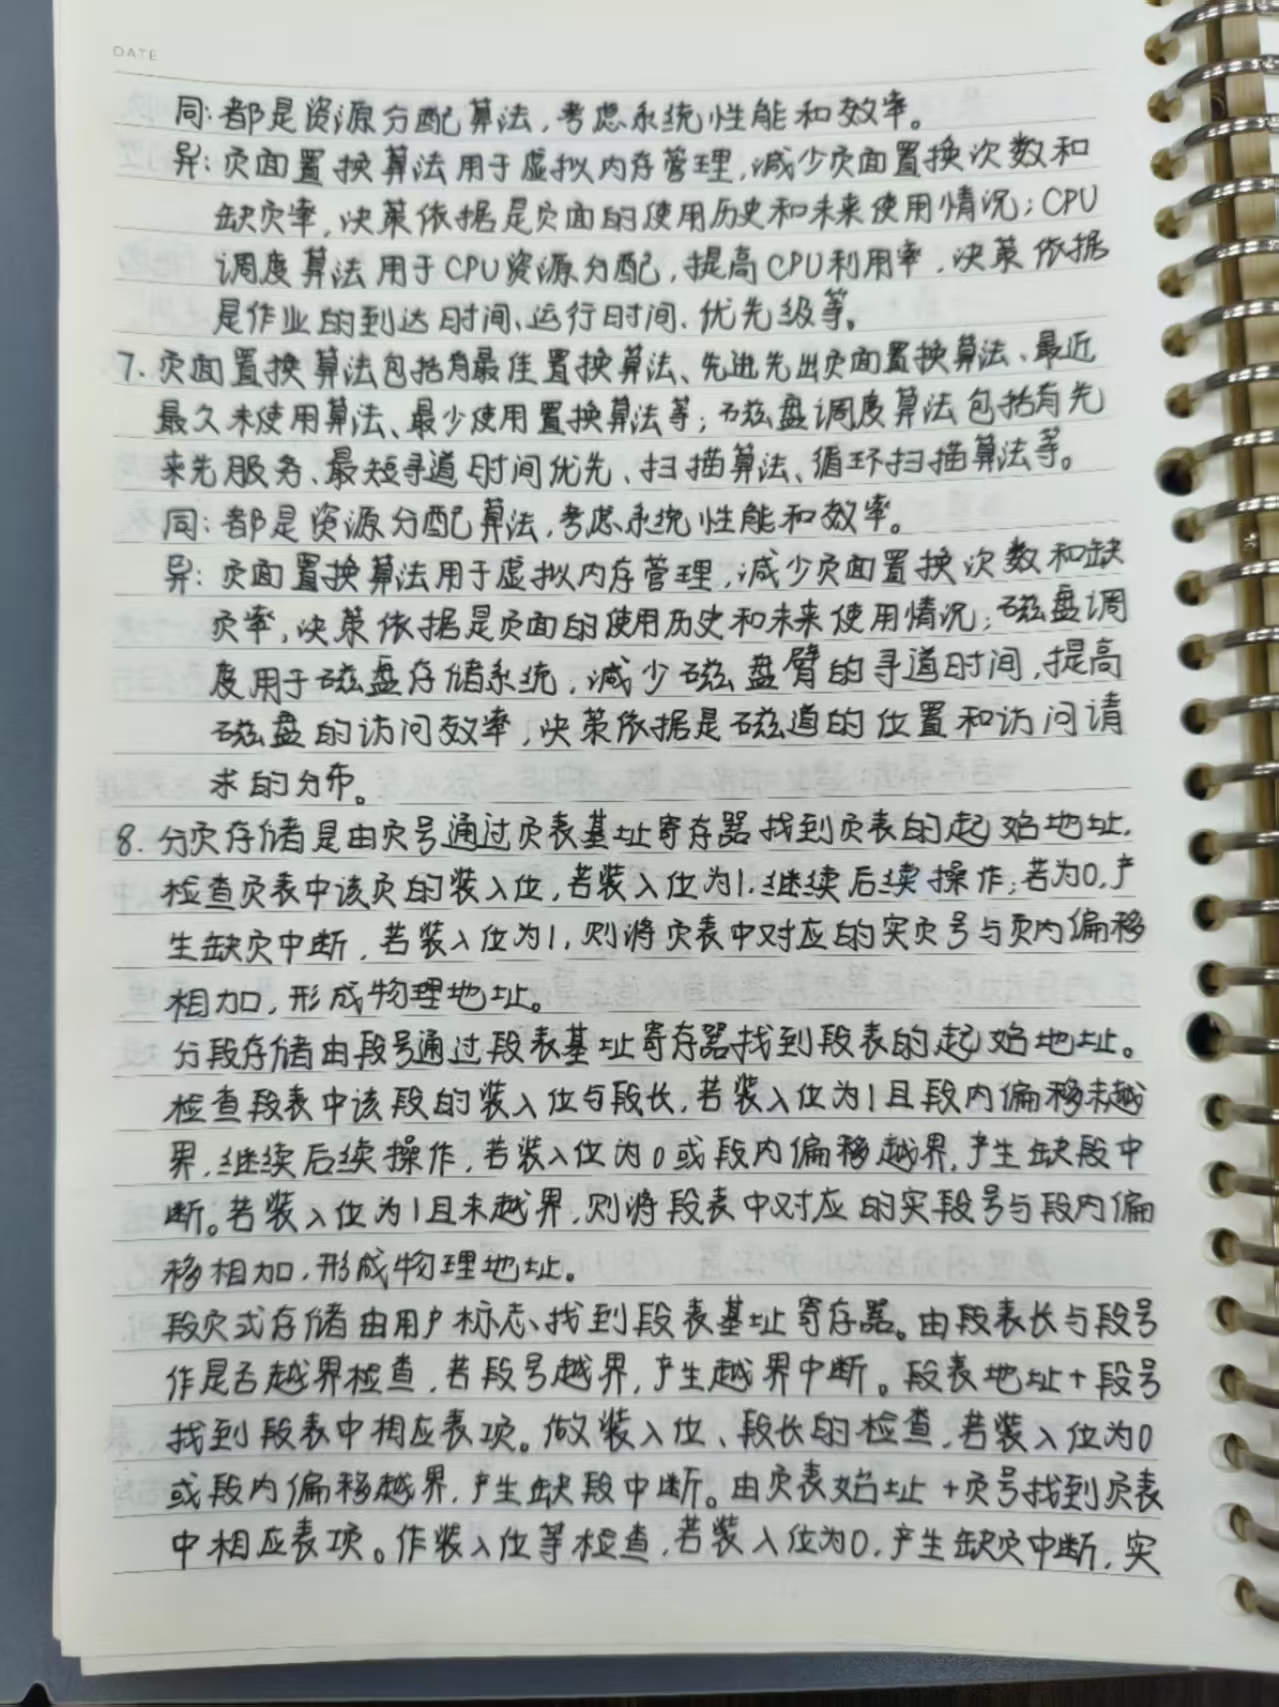 DATE
同:都是资源分配算法,考虑系统性能和效率。
异:页面置换算法用于虚拟内存管理,减少页面置换次数和
缺页率,决策依据是页面的使用历史和未来使用情况;CPU
调度算法用于CPU资源分配,提高CPU利用率,决策依据
是作业的到达时间、运行时间、优先级等。
7. 页面置换算法包括有最佳置换算法、先进先出页面置换算法、最近
最久未使用算法、最少使用置换算法等;磁盘调度算法包括有先
来先服务、最短寻道时间优先、扫描算法、循环扫描算法等。
同:都是资源分配算法,考虑系统性能和效率。
异:页面置换算法用于虚拟内存管理,减少页面置换次数和缺
页率,决策依据是页面的使用历史和未来使用情况;磁盘调
度用于磁盘存储系统,减少磁盘臂的寻道时间,提高
磁盘的访问效率,决策依据是磁道的位置和访问请
求的分布。
8. 分页存储是由页号通过页表基址寄存器找到页表的起始地址,
检查页表中该页的装入位,若装入位为1,继续后续操作;若为0,产
生缺页中断,若装入位为1,则将页表中对应的实页号与页内偏移
相加,形成物理地址。
分段存储由段号通过段表基址寄存器找到段表的起始地址。
检查段表中该段的装入位与段长,若装入位为1且段内偏移未越
界,继续后续操作,若装入位为0或段内偏移越界,产生缺段中
断。若装入位为1且未越界,则将段表中对应的实段号与段内偏
移相加,形成物理地址。
段页式存储由用户标志、找到段表基址寄存器。由段表长与段号
作是否越界检查,若段号越界,产生越界中断。段表地址+段号
找到段表中相应表项。做装入位、段长的检查,若装入位为0
或段内偏移越界,产生缺段中断。由页表始址+页号找到页表
中相应表项。作装入位等检查,若装入位为0,产生缺页中断,实